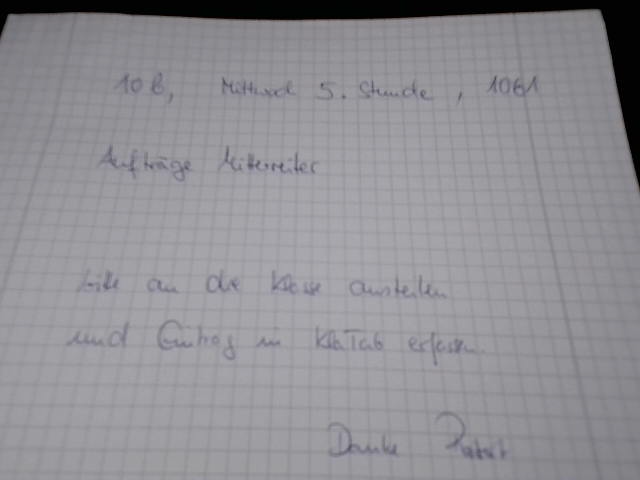 10b, Mittwoch 5. Stunde, 1061
Aufträge Mitterreiter
bitte an die Klasse austeilen
und Eintrag in KlaTab erfassen.
Danke